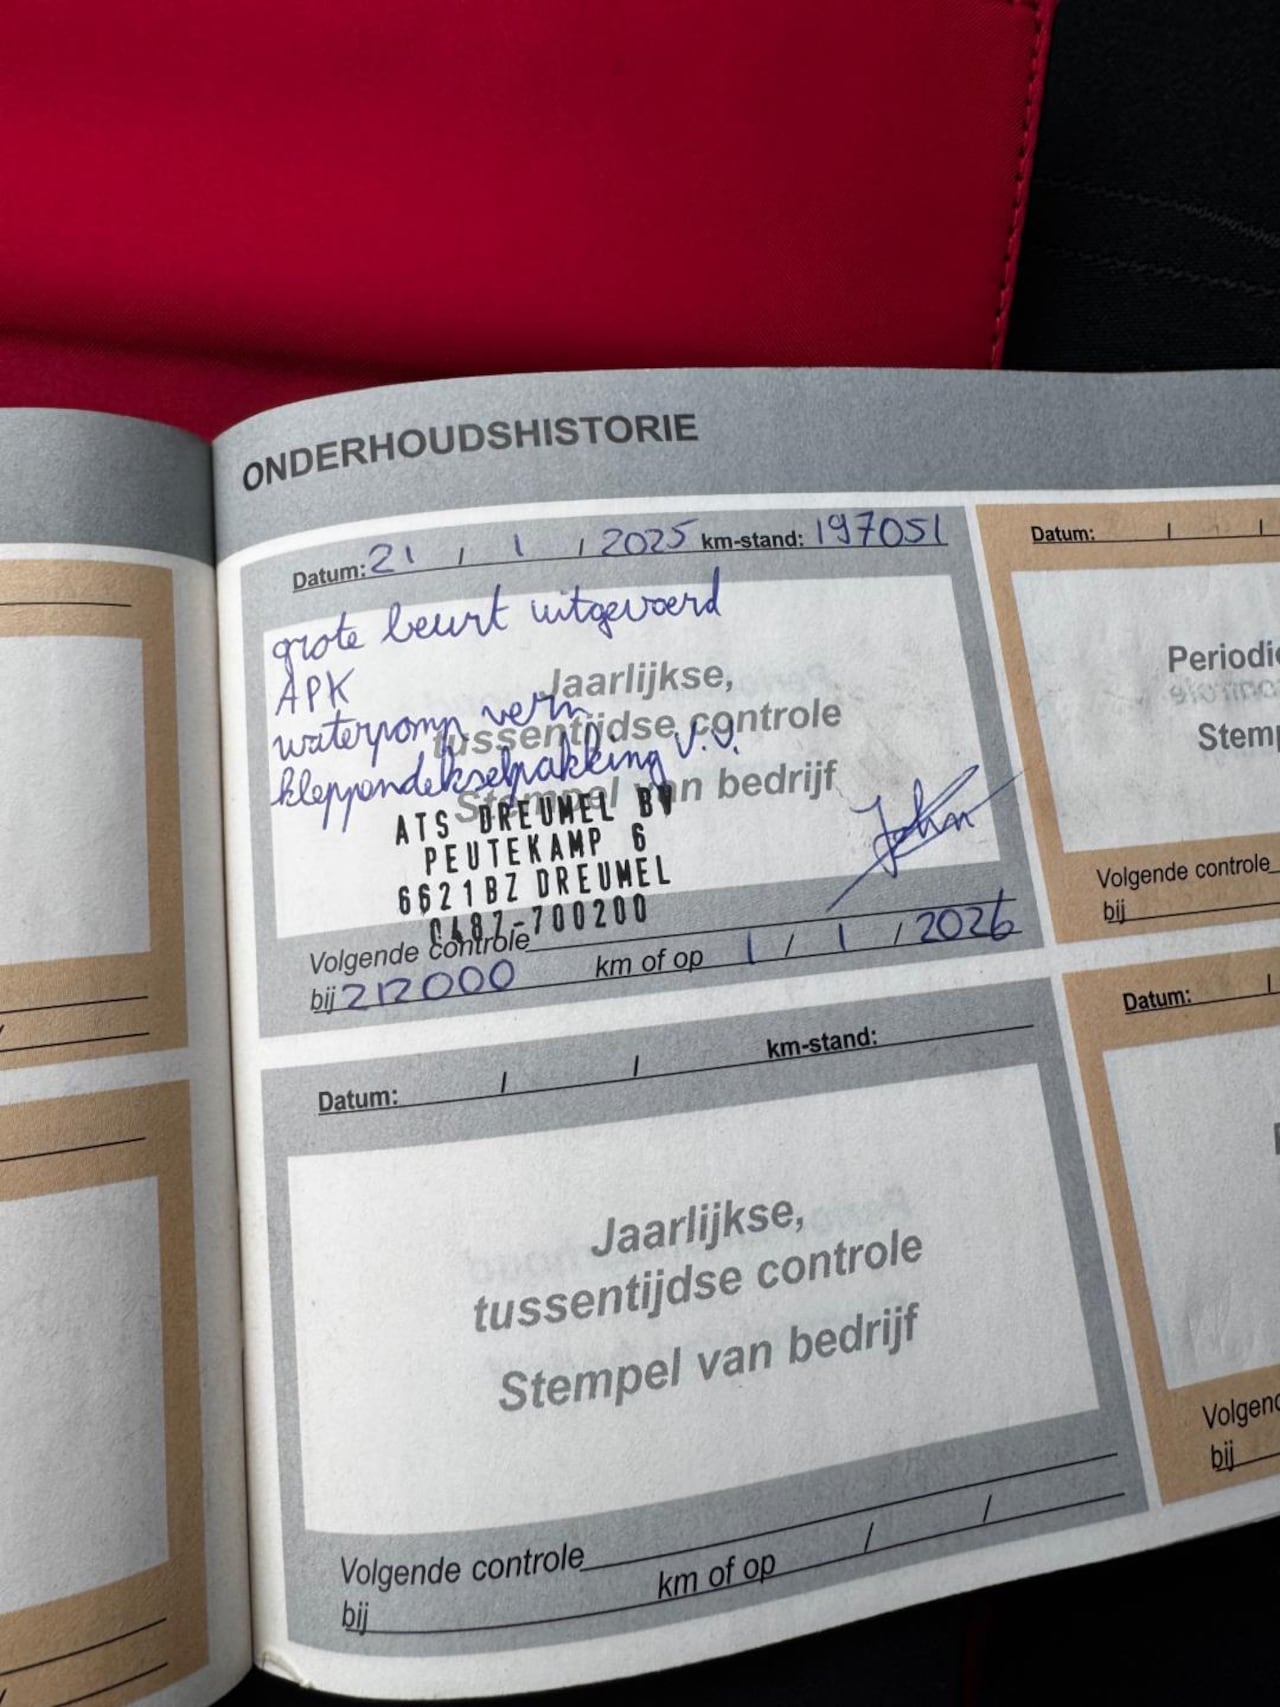 ONDERHOUDSHISTORIE
Datum: 21 / 1 / 2025 km-stand: 197051
grote beurt uitgevoerd
APK
waterpomp vern
kleppendekselpakking v.v.
Jaarlijkse,
tussentijdse controle
Stempel van bedrijf
ATS DREUMEL BV
PEUTEKAMP 6
6621BZ DREUMEL
0487-700200
John
Volgende controle
bij 212000 km of op 1 / 1 / 2026
Datum: / / km-stand:
Jaarlijkse,
tussentijdse controle
Stempel van bedrijf
Volgende controle
bij km of op / /
Datum: / /
Periodie
Stemp
Volgende controle
bij
Datum: /
Volgend
bij